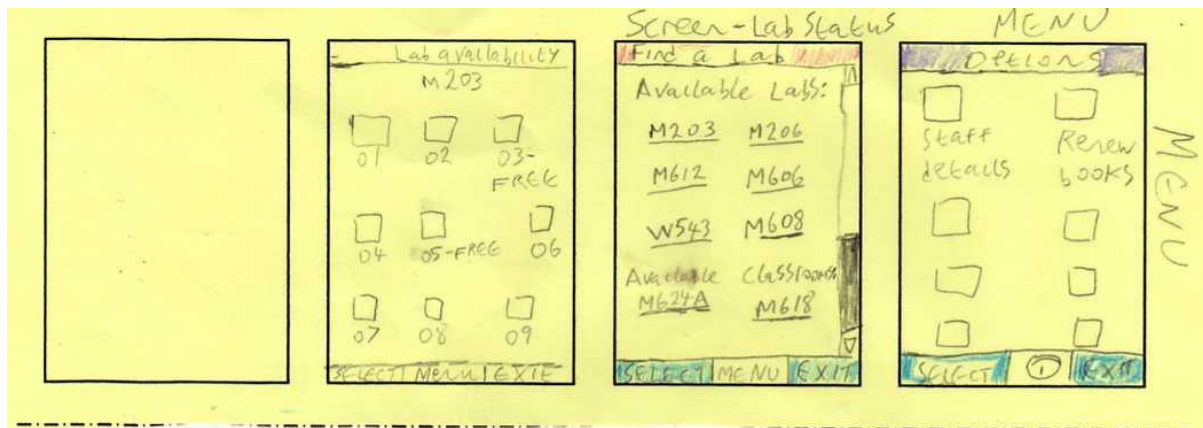 Screen-Lab Status
MENU
Lab availability
M203
01 02 03-
FREE
04 05-FREE 06
07 08 09
SELECT MENU EXIT
Find a Lab
Available Labs:
M203 M206
M612 M606
W543 M608
Available Classrooms
M624A M618
SELECT MENU EXIT
Options
Staff
details
Renew
books
SELECT EXIT
MENU